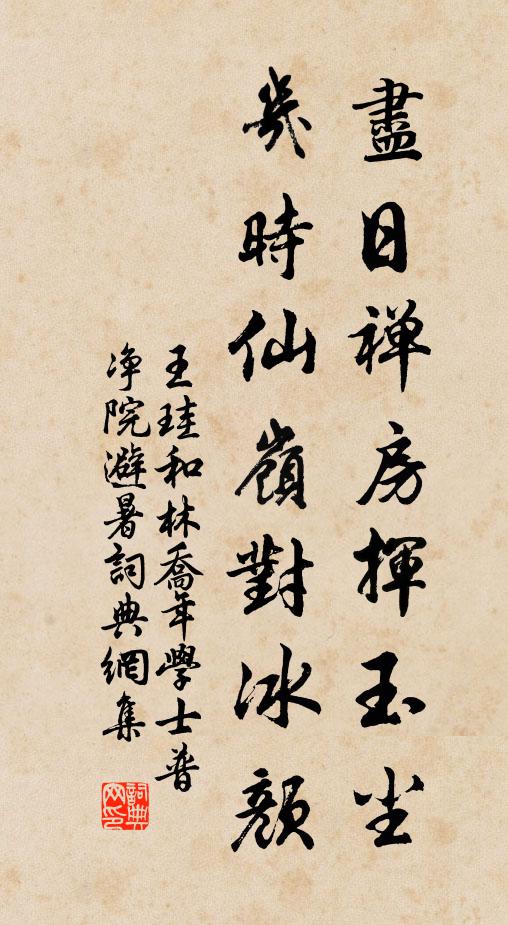 盡日禅房揮玉尘
幾時仙嶺對冰顏
王珪和林喬年學士普
净院避暑詞典網集
詞典网印